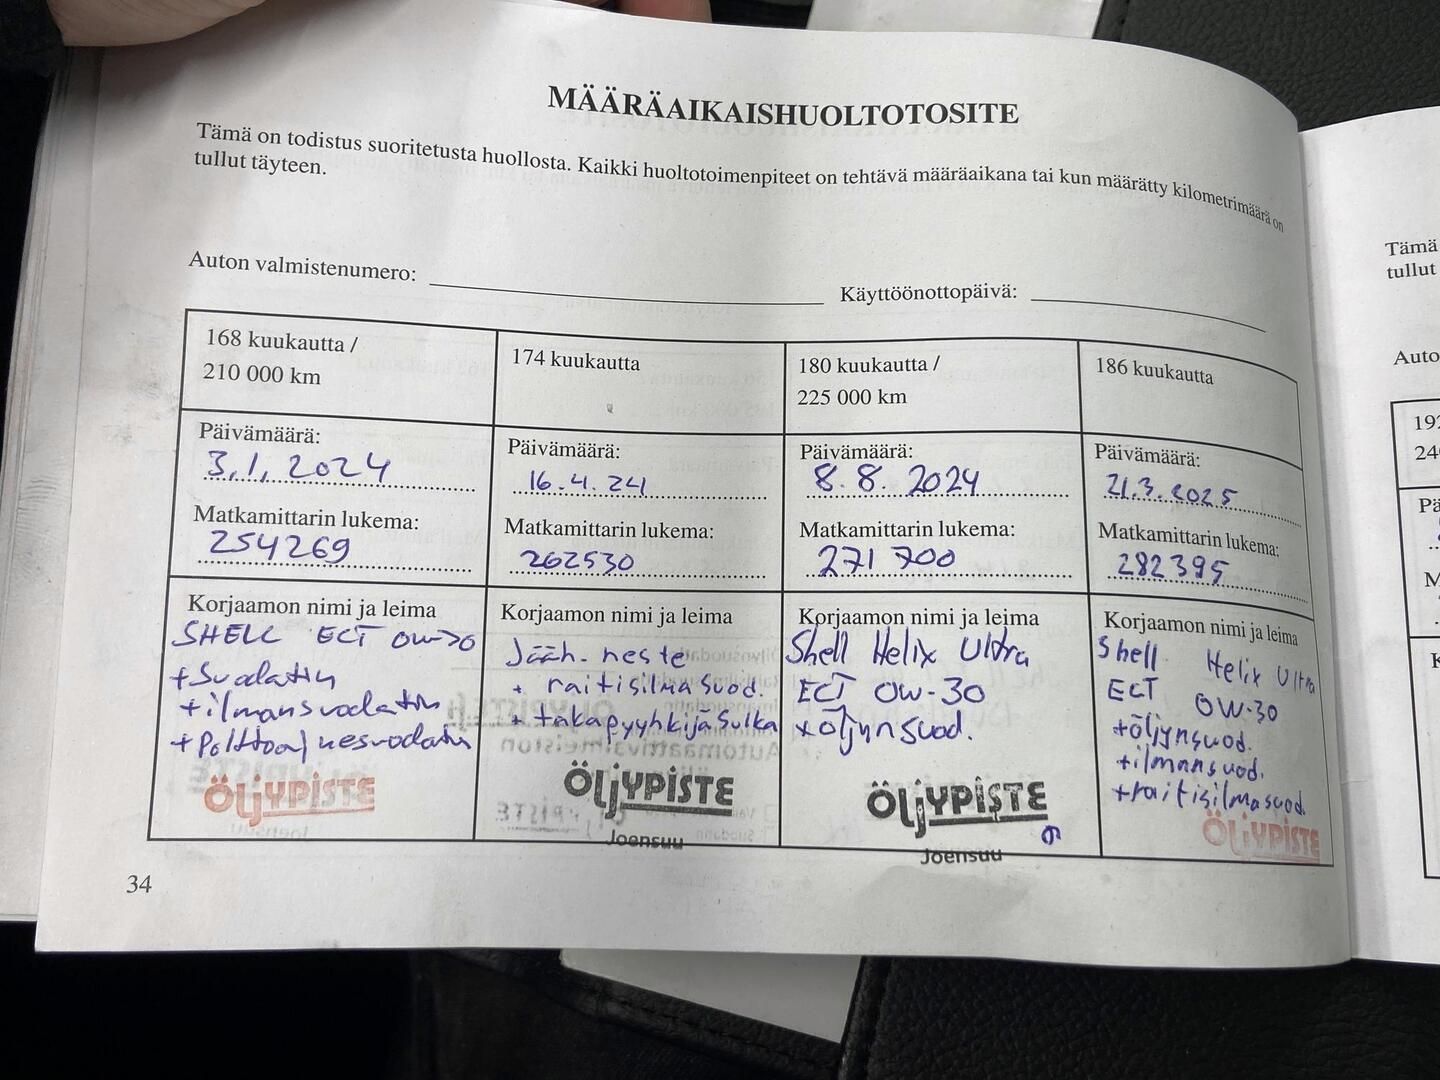 MÄÄRÄAIKAISHUOLTOTOSITE
Tämä on todistus suoritetusta huollosta. Kaikki huoltotoimenpiteet on tehtävä määräaikana tai kun määrätty kilometrimäärä on
tullut täyteen.
Auton valmistenumero:
Käyttöönottopäivä:
168 kuukautta /
210 000 km
Päivämäärä:
3.1.2024
Matkamittarin lukema:
254269
Korjaamon nimi ja leima
SHELL ECT 0W-30
+ Suodatin
+ ilmansuodatin
+ Polttoainesuodatin
ÖLJYPISTE
174 kuukautta
Päivämäärä:
16.4.24
Matkamittarin lukema:
262530
Korjaamon nimi ja leima
Jääh. neste
+ raitisilmasuod.
+ takapyyhkijäsulka
ÖLJYPISTE
Joensuu
180 kuukautta /
225 000 km
Päivämäärä:
8.8.2024
Matkamittarin lukema:
271 700
Korjaamon nimi ja leima
Shell Helix Ultra
ECT 0W-30
+ öljynsuod.
ÖLJYPISTE
Joensuu
186 kuukautta
Päivämäärä:
21.3.2025
Matkamittarin lukema:
282395
Korjaamon nimi ja leima
Shell Helix Ultra
ECT 0W-30
+öljynsuod.
+ilmansuod.
+raitisilmasuod.
ÖLJYPISTE
34
Tämä
tullut
Auto